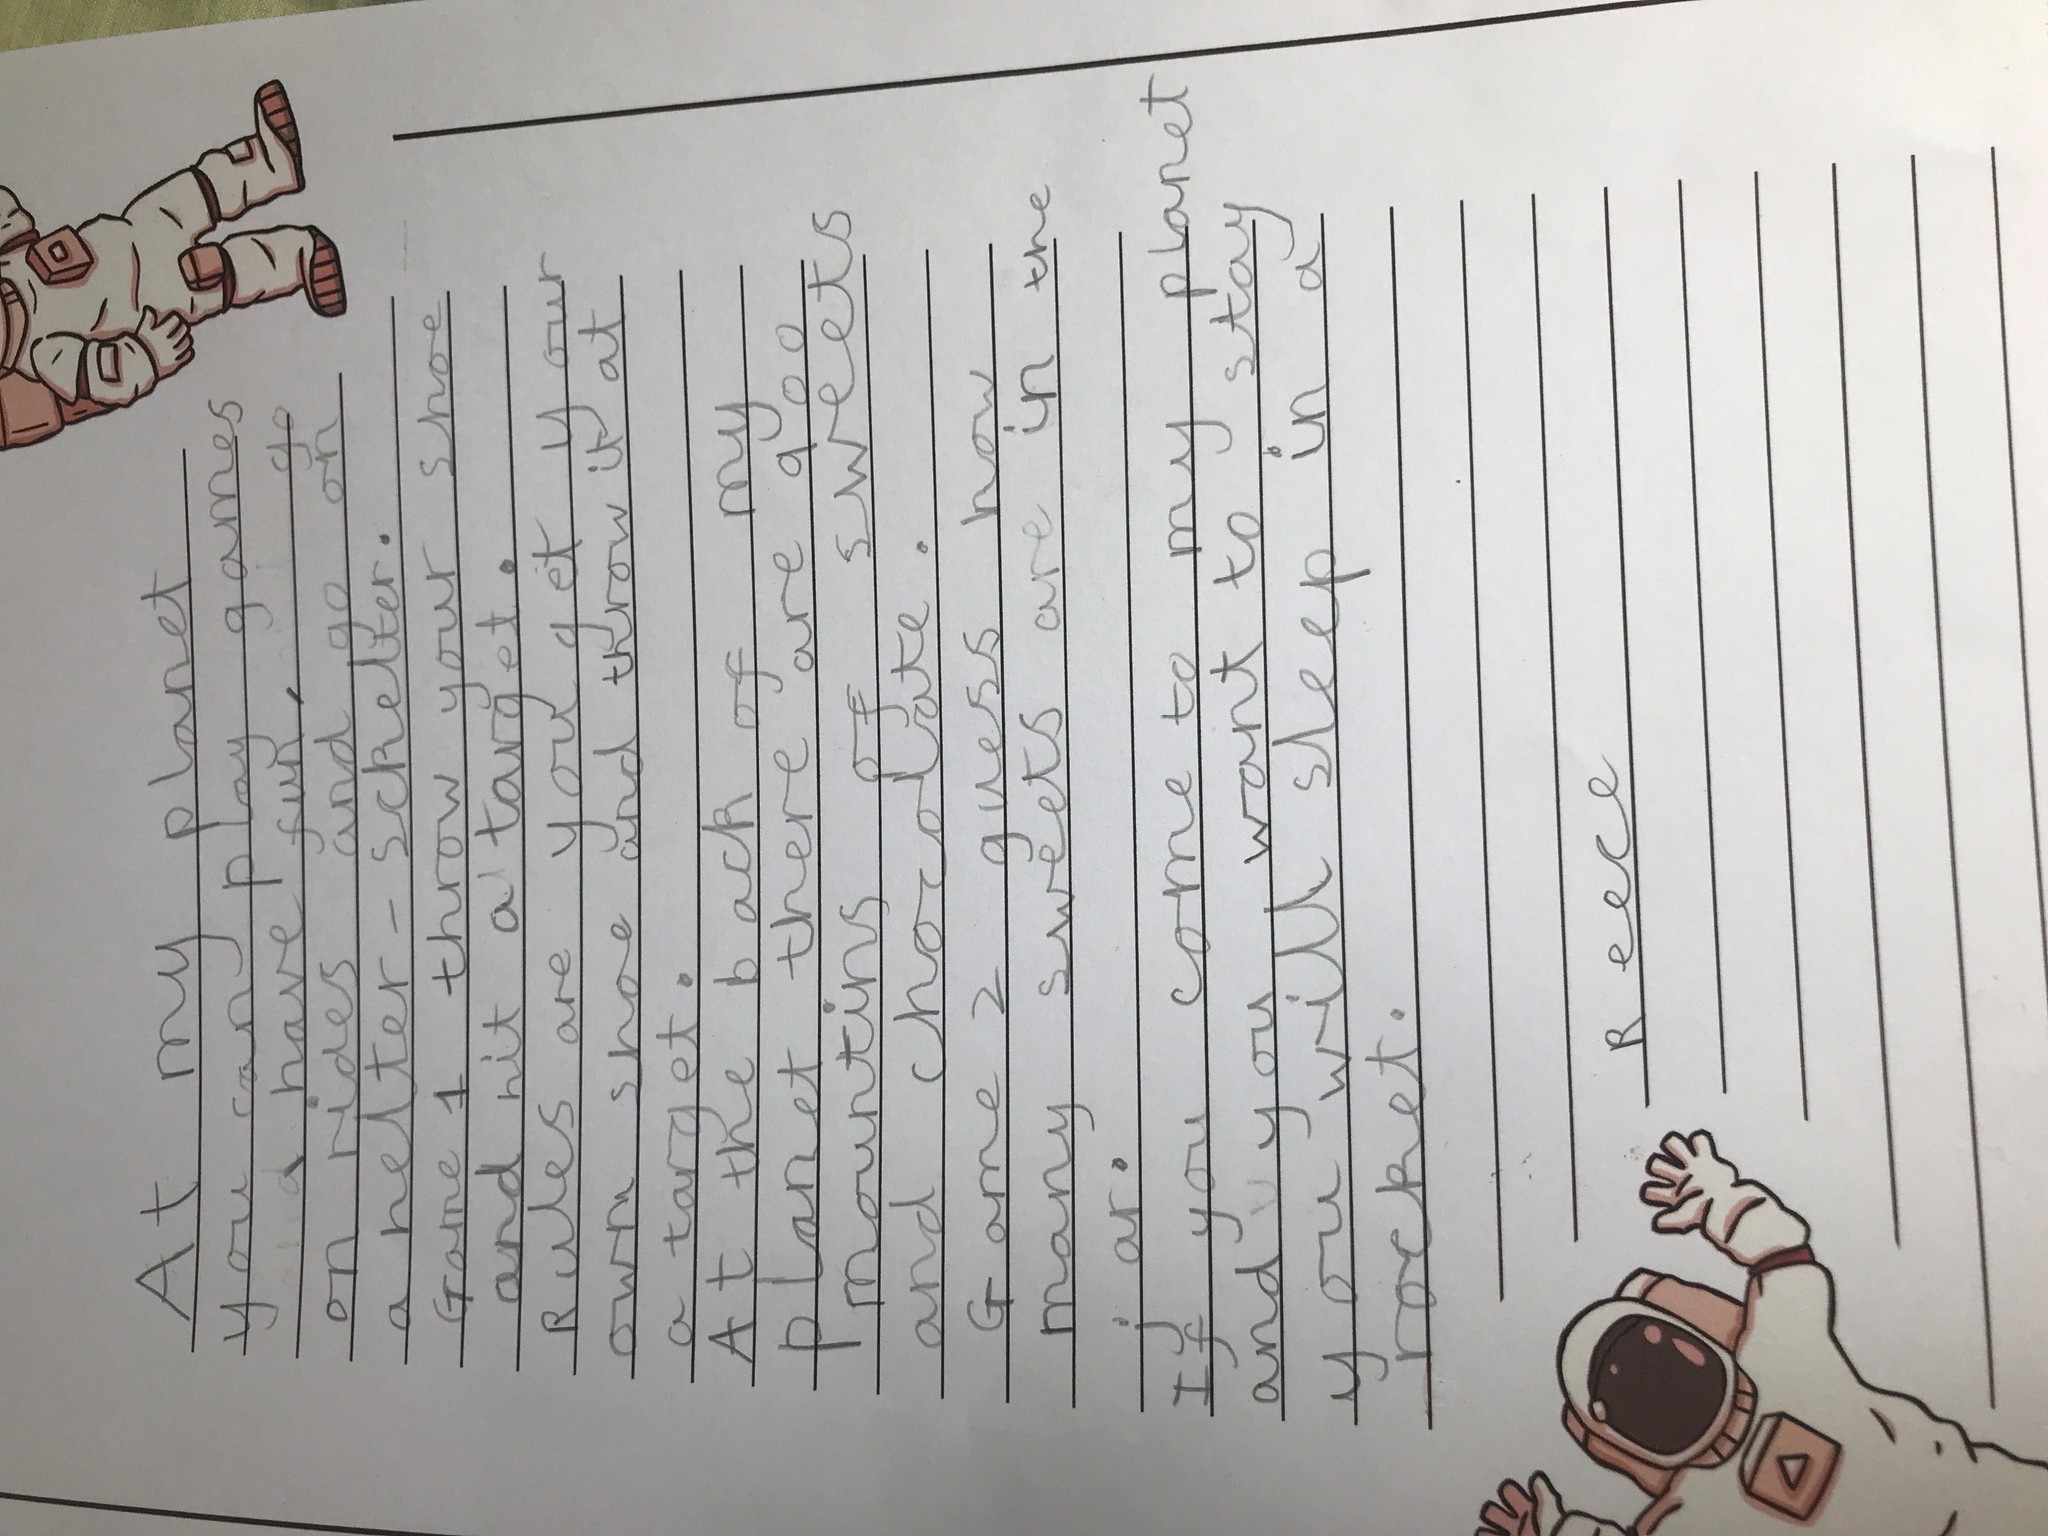 At my planet
you can play games
a have fun, go
on rides and go on
a helter-schelter.
Game 1 throw your shoe
and hit a target.
Rules are you get your
own shoe and throw it at
a target.
At the back of my
planet there are 900
mountins of sweets
and chocolate.
Game 2 guess how
many sweets are in the
jar.
If you come to my planet
and you want to stay
you will sleep in a
rocket.
Reece